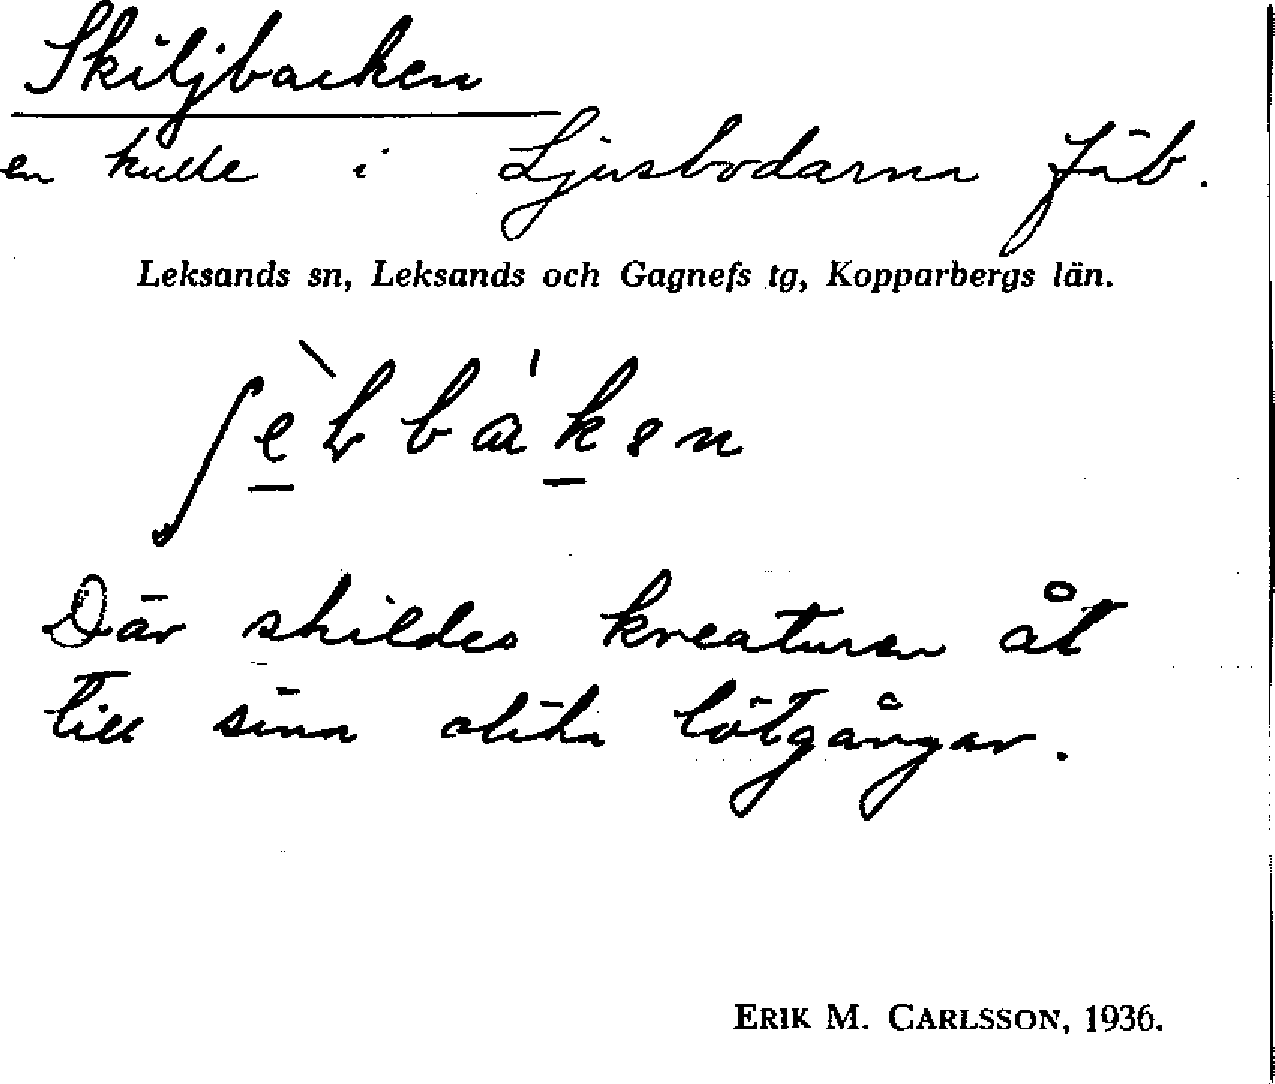 Skiljbacken
en kulle i Ljusbodarna fäb.
Leksands sn, Leksands och Gagnefs tg, Kopparbergs län.
Där skildes kreaturen åt
till sina olika lötgångar.
ERIK M. CARLSSON, 1936.